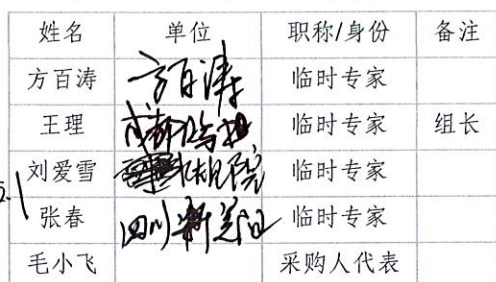 姓名 单位 职称/身份 备注
方百涛 方百涛 临时专家
王理 临时专家 组长
刘爱雪 临时专家
张春 四川 临时专家
毛小飞 采购人代表